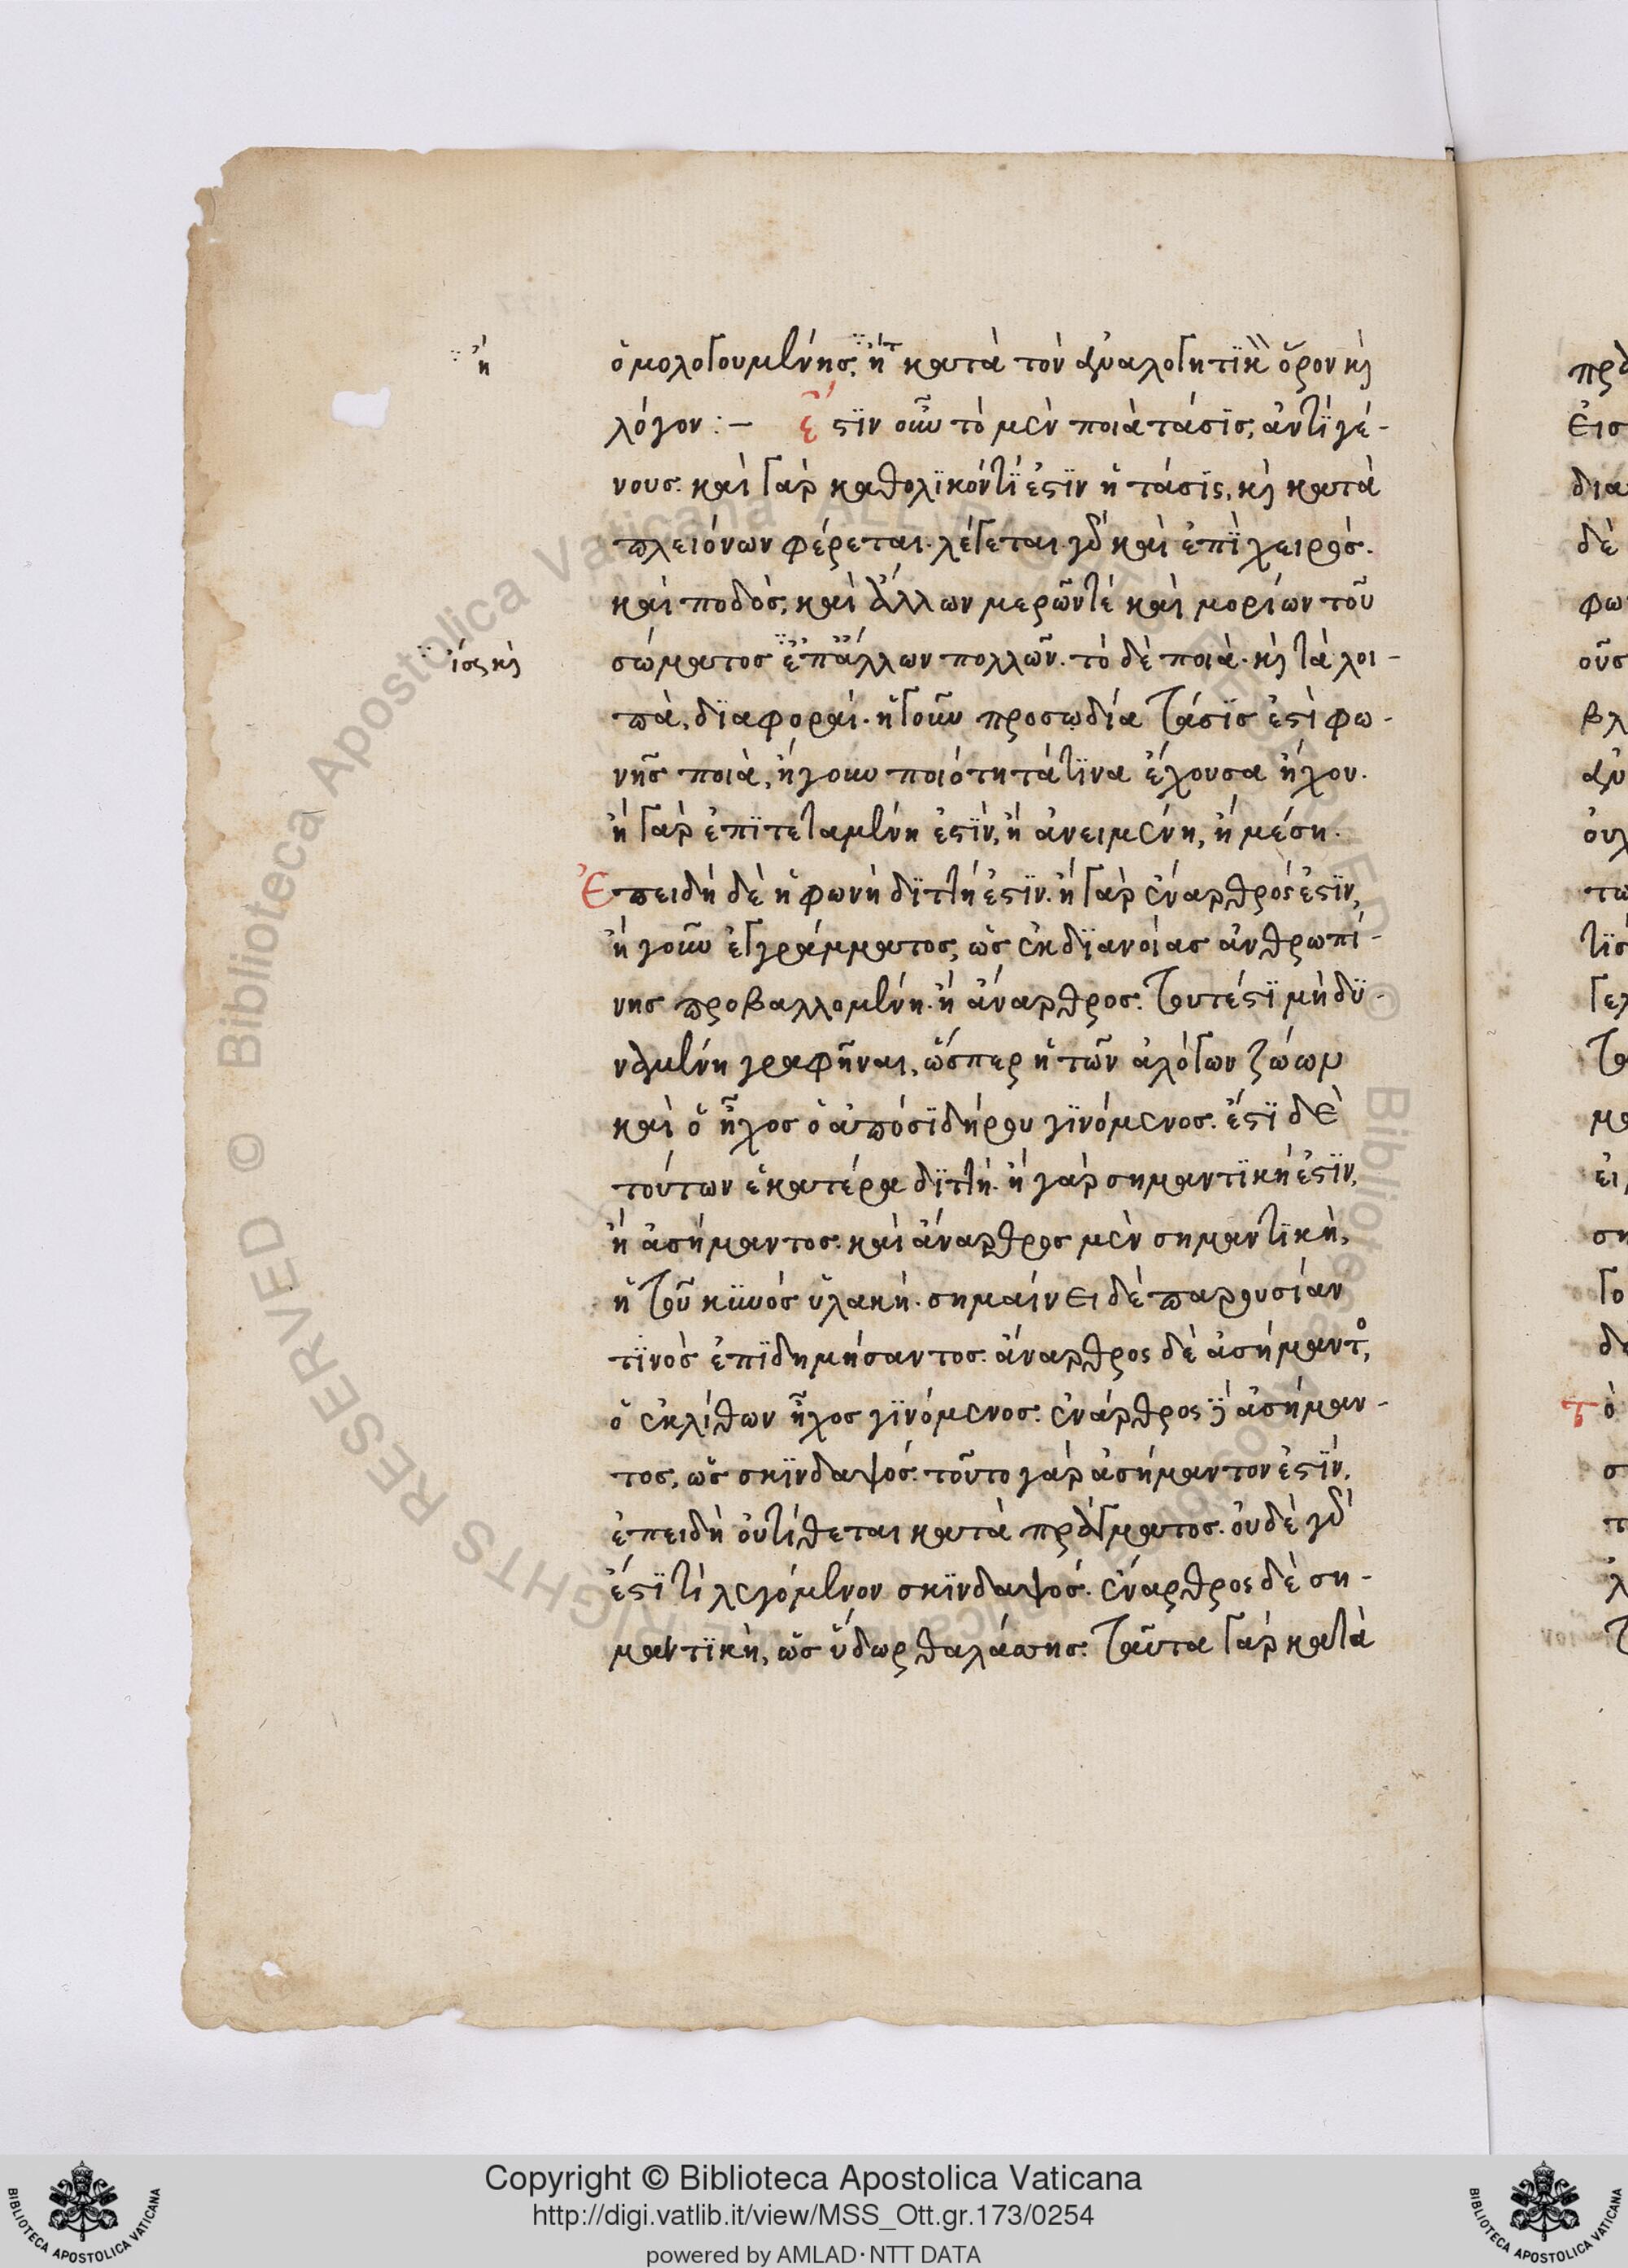 ὁμολογουμένης, ἤτ κατὰ τὸν ἀναλογητϊκὸν ὅρον καὶ
∵ ἢ
λόγον :– Ἔστϊν οὖν τὸ μὲν ποιὰ τάσϊς, ἀντὶ γέ-
νους. καὶ γὰρ καθολϊκόν τϊ ἐστϊν ἡ τάσϊς, καὶ κατὰ
πλειόνων φέρεται. λέγεται γὰρ καὶ ἐπϊ χειρός.
καὶ ποδός, καὶ ἄλλων μερῶν τὲ καὶ μορίων τοῦ
σώματος ∵ ἐπ' ἄλλων πολλῶν. τὸ δὲ ποιὰ. καὶ τὰ λοι-
∵ ἴσως καὶ
πὰ, δϊαφοραί. ἡ γοῦν προσῳδία τάσϊς ἐστὶ φω-
νῆς ποιὰ, ἤγουν ποιότητά τϊνα ἔχουσα ἤχου.
ἢ γὰρ ἐπϊτεταμένη ἐστϊν, ἢ ἀνειμένη, ἢ μέση.
Ἐπειδὴ δὲ ἡ φωνὴ δϊττή ἐστϊν. ἢ γὰρ ἔναρθρός ἐστϊν,
ἤγουν ἐγγράμματος, ὡς ἐκ δϊανοίας ἀνθρωπί-
νης προβαλλομένη. ἢ ἄναρθρος. τουτέστϊ μὴ δϋ-
ναμένη γραφῆναι, ὥσπερ ἡ τῶν ἀλόγων ζώων
καὶ ὁ ἦχος ὁ ἀπὸ σϊδήρου γϊνόμενος. ἔστϊ δὲ
τούτων ἑκατέρα δϊττή. ἢ γὰρ σημαντϊκή ἐστϊν,
ἢ ἀσήμαντος. καὶ ἄναρθρος μὲν σημαντϊκὴ,
ἡ τοῦ κϋνός ὑλακή. σημαίνει δὲ παρουσίαν
τϊνὸς ἐπϊδημήσαντος. ἄναρθρος δὲ ἀσήμαντο,
ὁ ἐκ λίθων ἦχος γϊνόμενος. ἐνάρθρος δὲ ἀσήμαν-
τος, ὡς σκϊνδαψός. τοῦτο γὰρ ἀσήμαντον ἐστϊν,
ἐπειδὴ οὐ τίθεται κατὰ πράγματος. οὐδὲ γὰρ
ἔστϊ τὶ λεγόμενον σκϊνδαψός. ἔναρθρος δὲ ση-
μαντϊκὴ, ὡς ὕδωρ θαλάσσης. ταῦτα γὰρ κατὰ
Copyright © Biblioteca Apostolica Vaticana
http://digi.vatlib.it/view/MSS_Ott.gr.173/0254
powered by AMLAD·NTT DATA